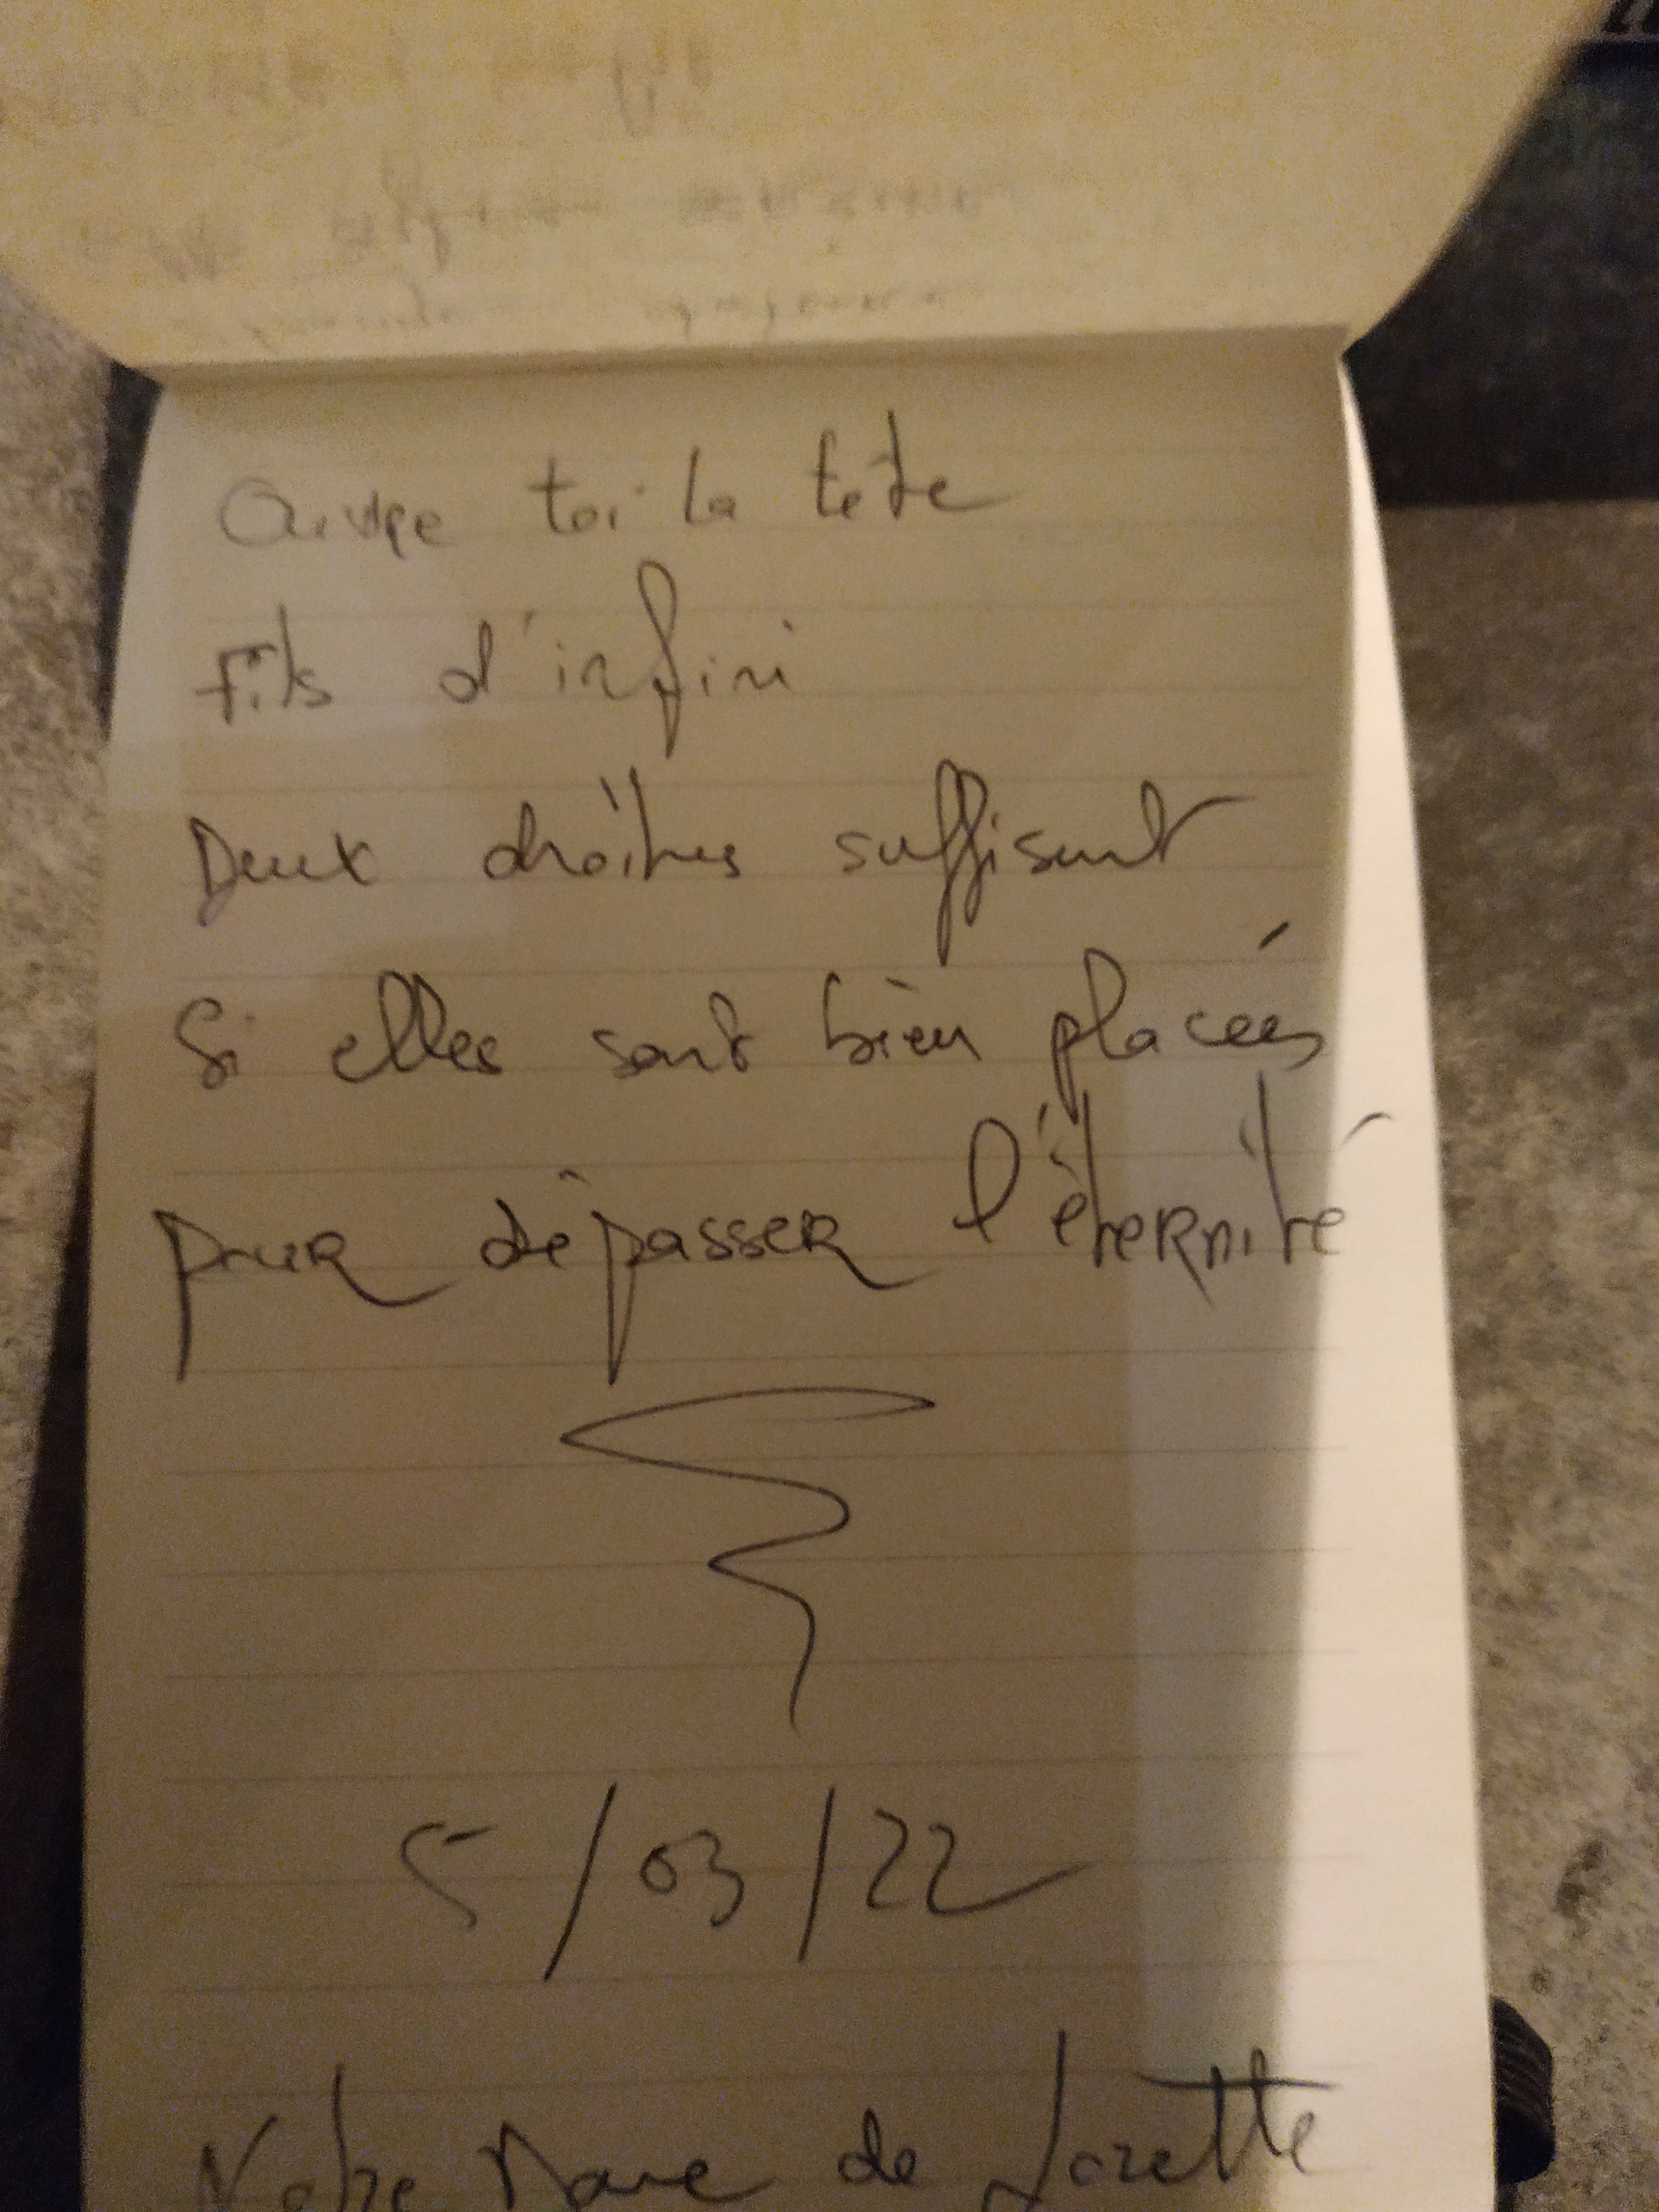 Ouvre toi la tête
Fils d'infini
Deux droites suffisent
Si elles sont bien placées
pour dépasser l'éternité
5/03/22
Notre Dame de Lorette